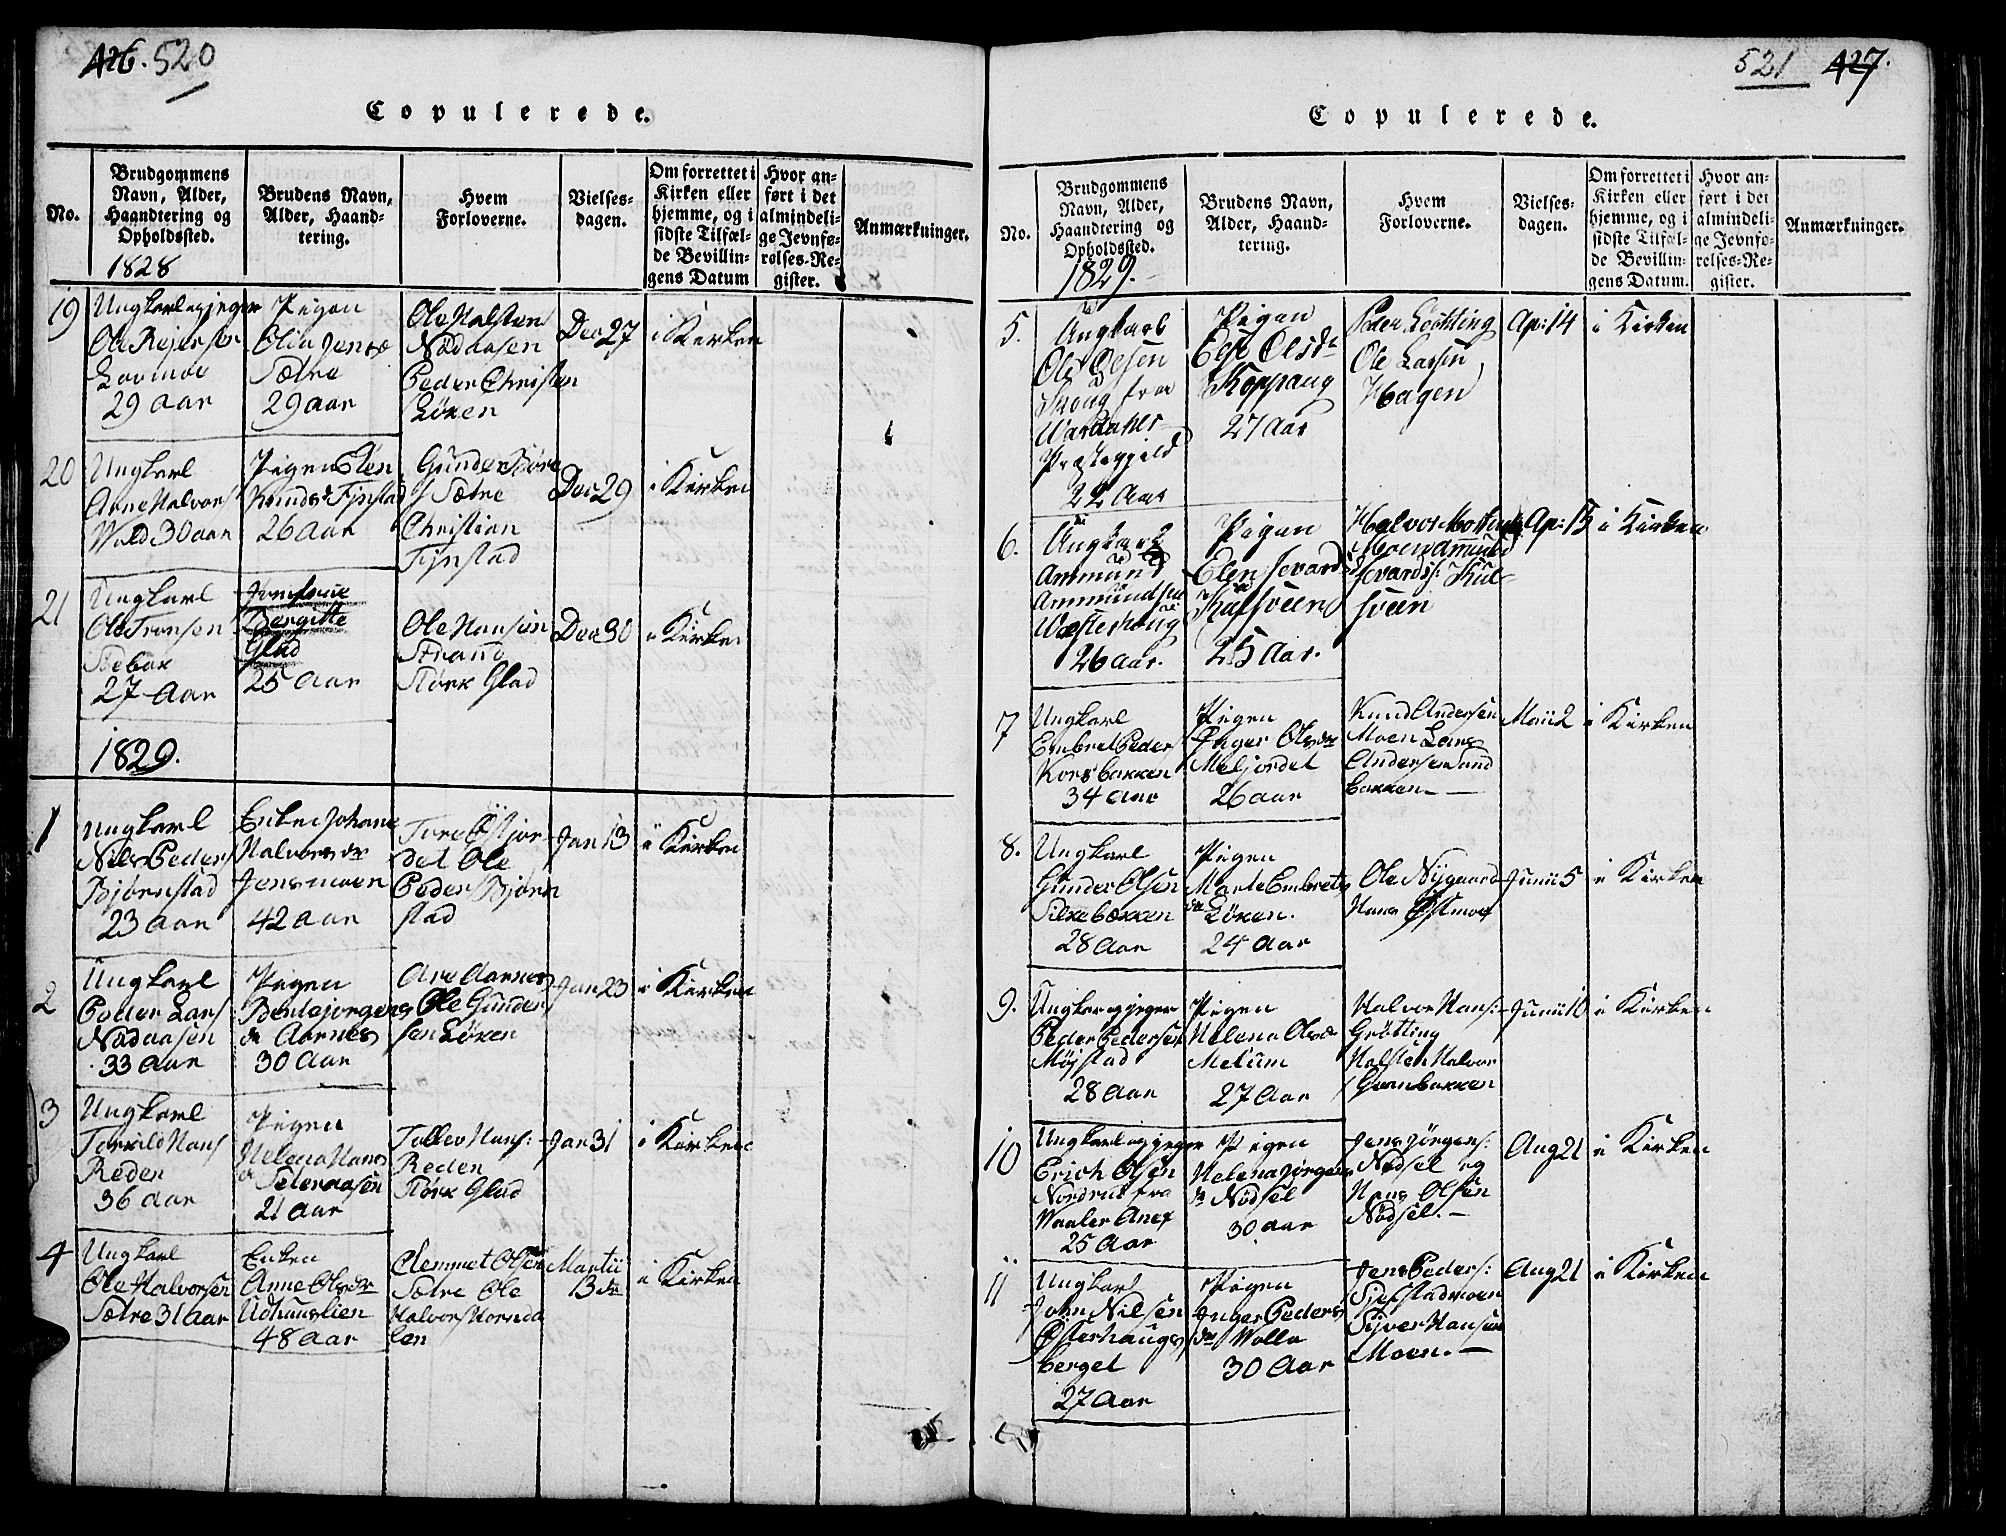 426. 520
Copulerede.
No.
Brudgommens
Navn, Alder,
Haandtering og
Opholdssted.
1828
Brudens Navn,
Alder, Haand-
tering.
Hvem
Forloverne.
Vielses-
dagen.
Om forrettet i
Kirken eller
hjemme, og i
sidste Tilfæl-
de Bevillin-
gens Datum
Hvor an-
ført i det
almindeli-
ge Jevnfø-
relses-Re-
gister.
Anmærkninger.
19
Ungkarl og jeger
Ole Rejersen
29 aar
Pigen
Olia Jens
Sætre
29 aar
Ole Halsten
Nödaasen
Peder Christen
Löken
Dec 27
i Kirken
20
Ungkarl
Arne Halvors
Wold 30 aar
Pigen Elen
Knudsd Fjnstad
26 Aar
Gunder Böre
Sætre
Christian
Fjnstad
Dec 29
i Kirken
21
Ungkarl
Ole Tronsen
Stebak
27 Aar
Jomfrue
Bergitte
Glad
25 aar
Ole Hansen
Strand
Störk Glad
Dec 30
i Kirken
1829.
1
Ungkarl
Nils Peders
Björnstad
23 aar
Enken Johane
Halvorsdr
Jensmoen
42 aar
Tore Östjor
det Ole
Peders Björn
stad
Jan 13
i Kirken
2
Ungkarl
Peder Lars
Nödaasen
33 aar
Pigen
Bentejorgens
dr Aarnes
30 Aar
Are Aarnes
Ole Gunder
sen Löken
Jan 23
i Kirken
3
Ungkarl
Torkild Hans
Reden
36 aar
Pigen
Helena Hans
dr
21 aar
Tollev Hans:
Reden
Störk Glad
Jan 31
i Kirken
4
Ungkarl
Ole Halvorsen
Sætre 31 aar
Enken
Anne Olsdr
Udhuuslien
48 aar
Clemmet Olsen
Sætre Ole
Halvors Hornda
len
Martii
i Kirken
521 427.
Copulerede.
No.
Brudgommens
Navn, Alder,
Haandtering og
Opholdssted.
1829.
Brudens Navn,
Alder, Haand-
tering.
Hvem
Forloverne.
Vielses-
dagen.
Om forrettet i
Kirken eller
hjemme, og i
sidste Tilfæl-
de Bevillin-
gens Datum.
Hvor an-
ført i det
almindeli-
ge Jevnfø-
relses-Re-
gister.
Anmærkninger.
5.
Ungkarl
Ole Olsen
Skoug fra
Præstegjeld
22 Aar
Pigen
Else Olsdr
Koppang
27 Aar
Peder Löchting
Ole Larsen
Hagen
Ap: 14
i Kirken
6.
Ungkarl
Ammund
Ammundsen
Westerhaug
26 Aar.
Pigen
Elen Sevards
Kulsveen
25 Aar.
Halvor
Moen Amund
Sevards: Kul-
sveen
Ap: 15
i Kirken
7
Ungkarl
Embret Peders
Korsbakken
34 Aar
Pigen
Inger Olsdr
Meljordet
26 aar
Knud Andersen
Moen Lars
Andersen Sand
bakken.
Maii 2
i Kirken
8.
Ungkarl
Gunder Olsen
Silkebækken
28 Aar
Pigen
Marte Embrets
dr Löken.
24 Aar
Ole Nijgaard
Hans Östmoe
Junii 5
i Kirken
9.
Ungkar og jeger
Peder Pedersen
Möjstad
28 Aar
Pigen
Helena Olsdr
Melum
27 Aar
Halvor Hans:
Grötting
Halsten Halvor
Granbakken
Junii 10
i Kirken
10
Ungkarl og jeger
Erich Olsen
Nordrud fra
Waaler Anex
25 Aar
Pigen
Helena Jörgens
dr Nödsel
30 aar
Jens Jörgens:
Nödsel og
Hans Olsen
Nödsel.
Aug 21
i Kirken
11
Ungkarl
John Nilsen
Österhaugs
berget
27 Aar
Pigen
Inger Peders
dr Wolla
30 Aar
Jens Peders:
Sjelstadmoen
Sijver Hansen
Moen.
Aug 21
i Kirken